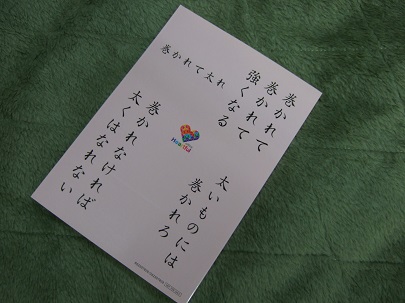 巻かれて
巻かれて
強くなる
巻かれて太れ
太いものには
巻かれろ
巻かれなければ
太くはなれない